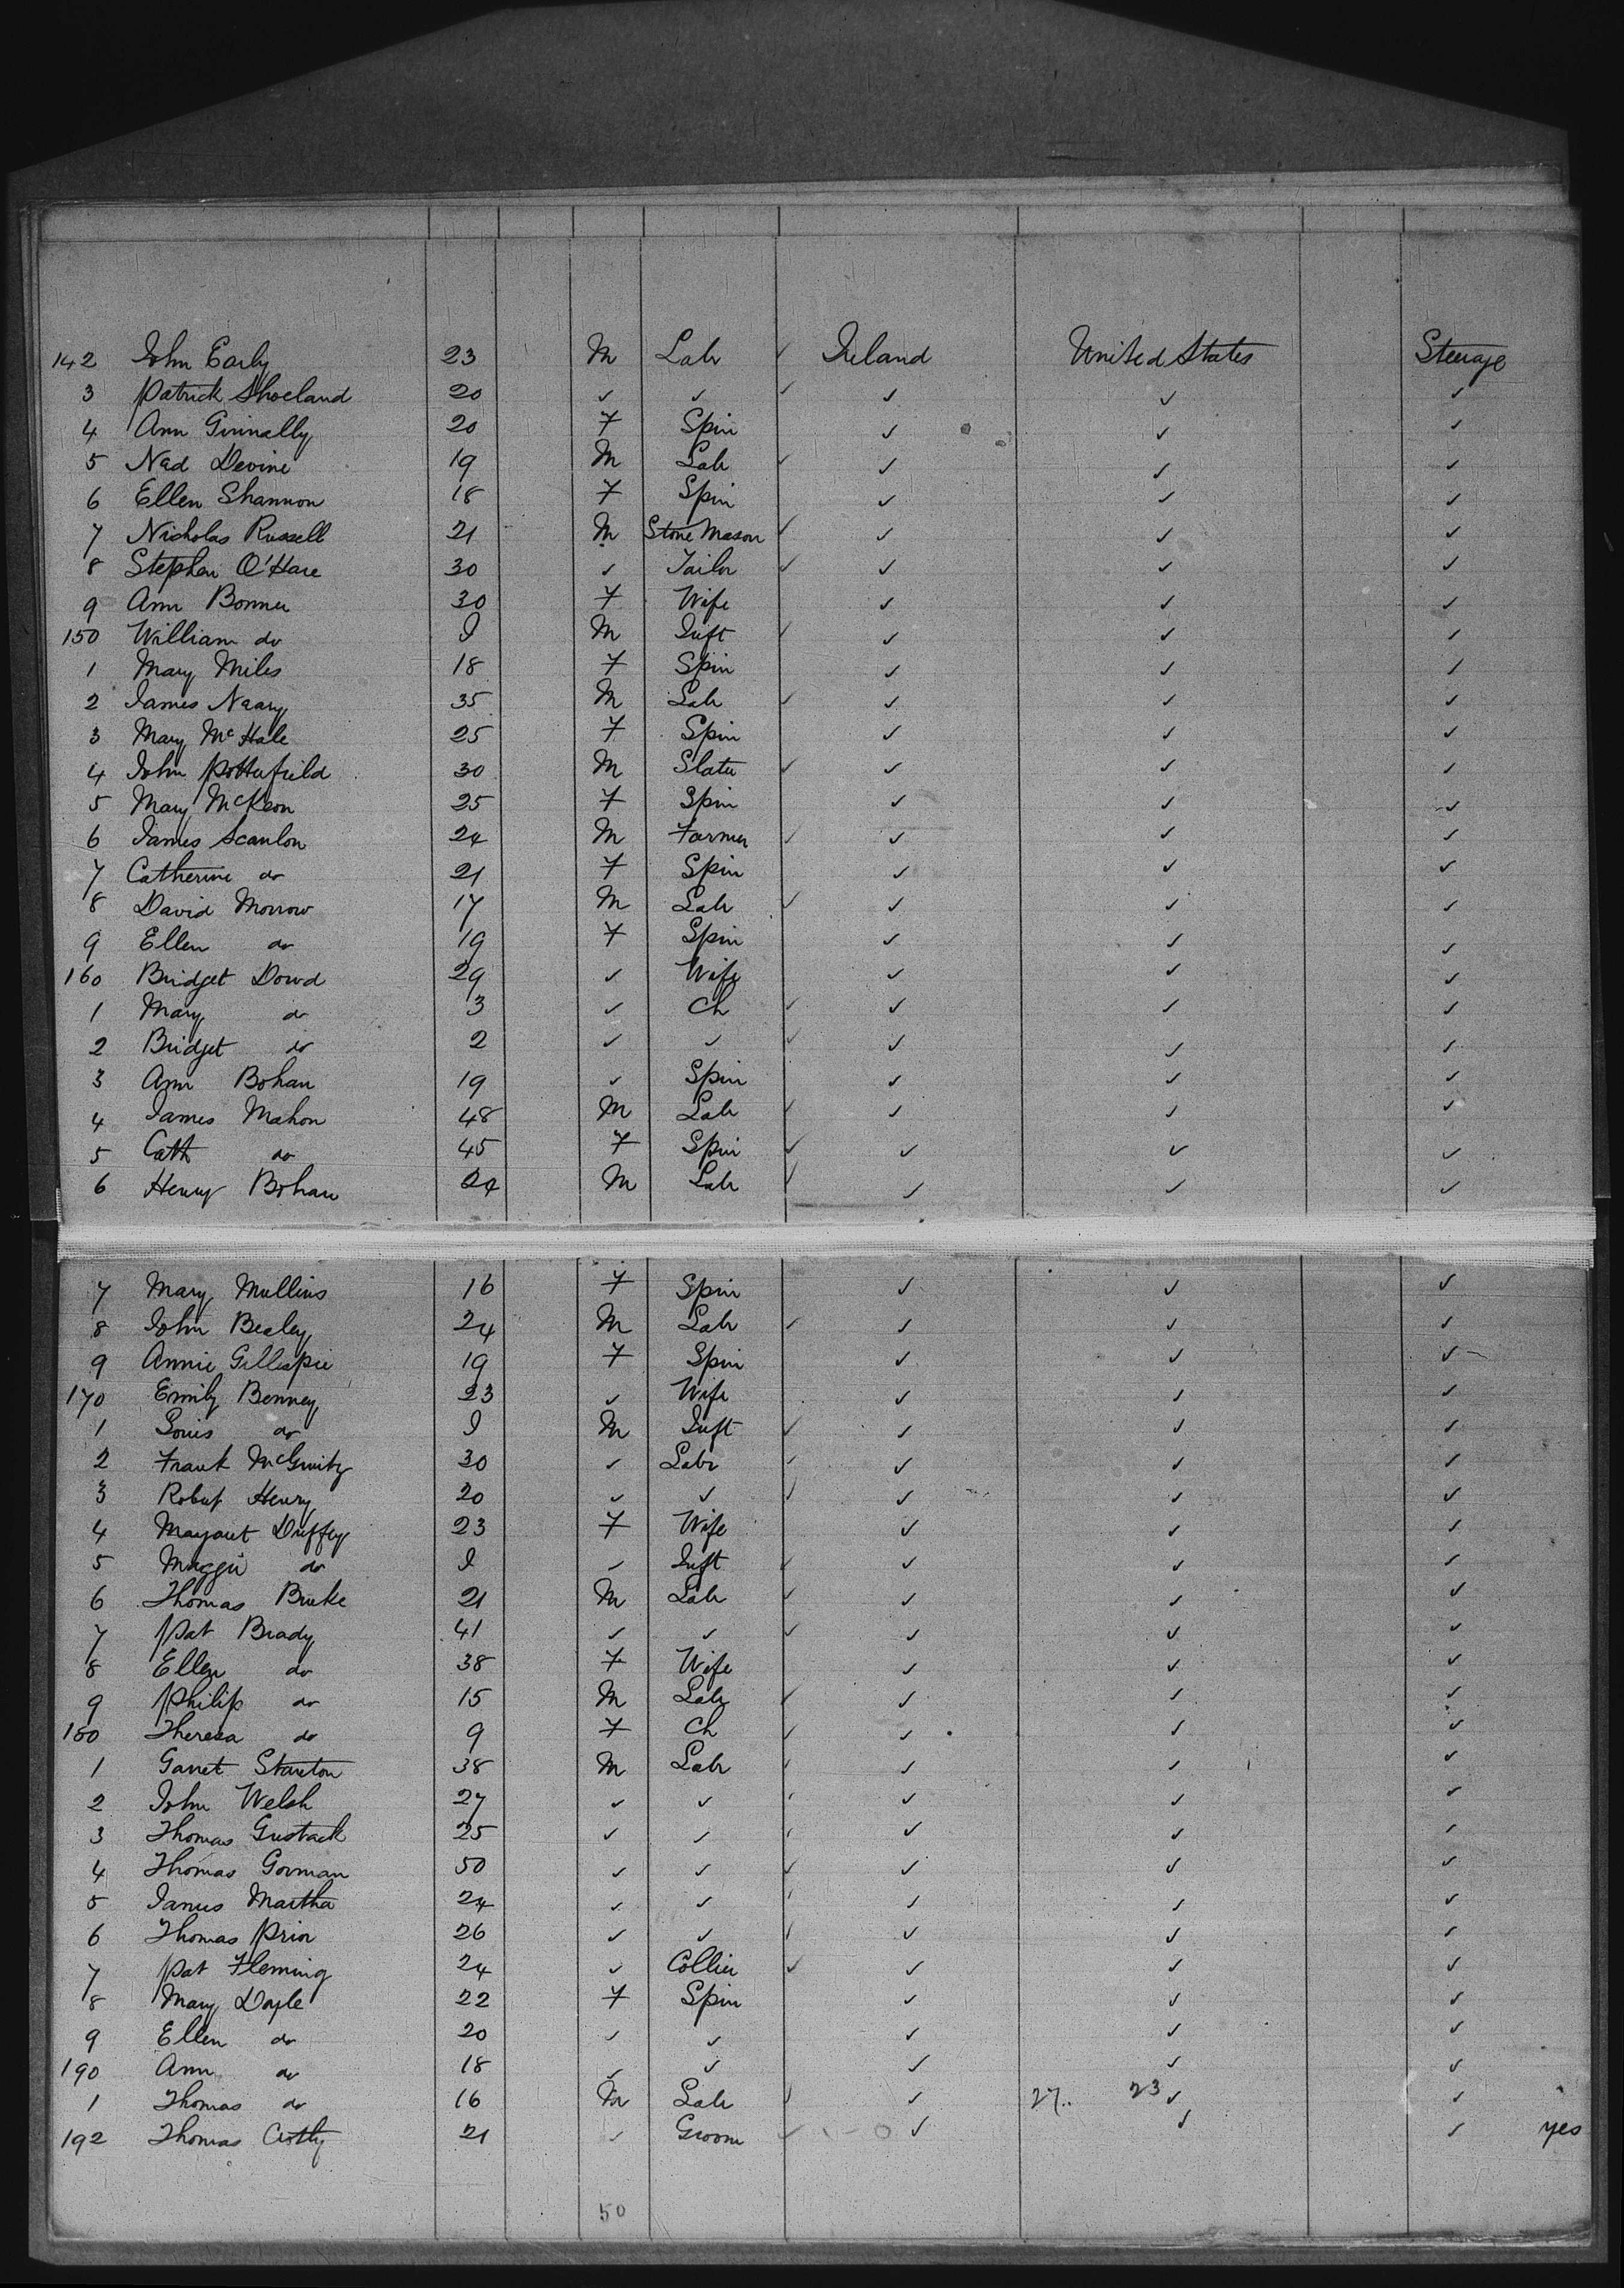 142 John Early 23 M Labr ✓ Ireland United States Steerage
3 Patrick Shoeland 20 ✓ ✓ ✓ ✓ ✓ ✓
4 Ann Ginnally 20 F Spin ✓ ✓ ✓
5 Ned Devine 19 M Labr ✓ ✓ ✓ ✓
6 Ellen Shannon 18 F Spin ✓ ✓ ✓
7 Nicholas Russell 21 M Stone Mason ✓ ✓ ✓ ✓
8 Stephen O'Hare 30 ✓ Tailor ✓ ✓ ✓ ✓
9 Ann Bonner 30 F Wife ✓ ✓ ✓
150 William do I M Inft ✓ ✓ ✓ ✓
1 Mary Miles 18 F Spin ✓ ✓ ✓
2 James Neary 35 M Labr ✓ ✓ ✓ ✓
3 Mary McHale 25 F Spin ✓ ✓ ✓
4 John Potterfield 30 M Slater ✓ ✓ ✓ ✓
5 Mary McKeon 25 F Spin ✓ ✓ ✓
6 James Scanlon 24 M Farmer ✓ ✓ ✓ ✓
7 Catherine do 21 F Spin ✓ ✓ ✓
8 David Morrow 17 M Labr ✓ ✓ ✓ ✓
9 Ellen do 19 F Spin ✓ ✓ ✓
160 Bridget Dowd 29 ✓ Wife ✓ ✓ ✓
1 Mary do 3 ✓ Ch ✓ ✓ ✓ ✓
2 Bridget do 2 ✓ ✓ ✓ ✓ ✓ ✓
3 Ann Bohan 19 ✓ Spin ✓ ✓ ✓
4 James Mahon 48 M Labr ✓ ✓ ✓ ✓
5 Cath do 45 F Spin ✓ ✓ ✓ ✓
6 Henry Bohan 24 M Labr ✓ ✓ ✓ ✓
7 Mary Mullins 16 F Spin ✓ ✓ ✓
8 John Bealey 24 M Labr ✓ ✓ ✓ ✓
9 Annie Gillespie 19 F Spin ✓ ✓ ✓
170 Emily Benney 23 ✓ Wife ✓ ✓ ✓
1 Louis do I M Inft ✓ ✓ ✓ ✓
2 Frank McGinity 30 ✓ Labr ✓ ✓ ✓ ✓
3 Robert Henry 20 ✓ ✓ ✓ ✓ ✓ ✓
4 Margaret Duffey 23 F Wife ✓ ✓ ✓
5 Maggie do I ✓ Inft ✓ ✓ ✓ ✓
6 Thomas Burke 21 M Labr ✓ ✓ ✓ ✓
7 Pat Brady 41 ✓ ✓ ✓ ✓ ✓ ✓
8 Ellen do 38 F Wife ✓ ✓ ✓
9 Philip do 15 M Labr ✓ ✓ ✓ ✓
180 Theresa do 9 F Ch ✓ ✓ ✓ ✓
1 Garret Staunton 38 M Labr ✓ ✓ ✓ ✓
2 John Welsh 27 ✓ ✓ ✓ ✓ ✓ ✓
3 Thomas Gustack 25 ✓ ✓ ✓ ✓ ✓ ✓
4 Thomas Gorman 50 ✓ ✓ ✓ ✓ ✓ ✓
5 James Martha 24 ✓ ✓ ✓ ✓ ✓ ✓
6 Thomas Prior 26 ✓ ✓ ✓ ✓ ✓ ✓
7 Pat Fleming 24 ✓ Collier ✓ ✓ ✓ ✓
8 Mary Doyle 22 F Spin ✓ ✓ ✓
9 Ellen do 20 ✓ ✓ ✓ ✓ ✓
190 Ann do 18 ✓ ✓ ✓ ✓ ✓
1 Thomas do 16 M Labr ✓ ✓ 27.. 23 ✓ ✓
192 Thomas 21 ✓ Groom ✓ ✓ ✓ ✓ yes
50